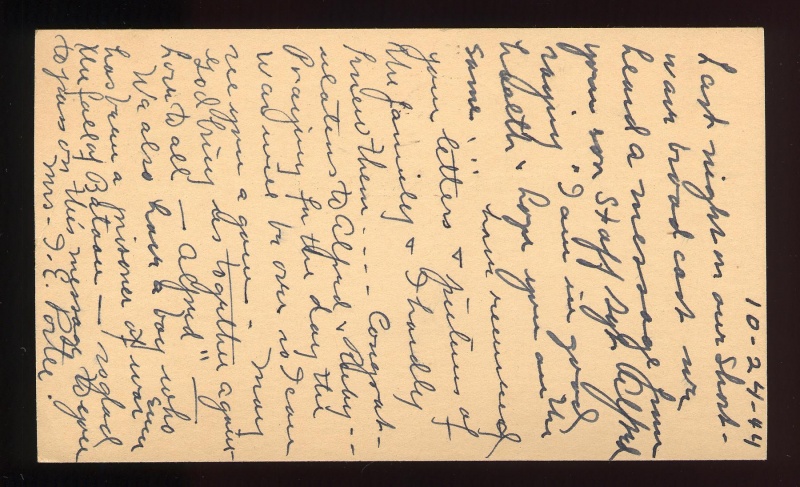 10-24-44
Last night on our Short-
wave broadcast we
heard a message from
your son Staff Sgt Alfred
saying "I am in good
health & hope you are the
same "; have received
your letters & pictures of
the family & I hardly
knew them --- Congrat-
ulations to Alfred & Ruby --
Praying for the day the
war will be over so I can
see you again. May
God bring us together again
Love to all — Alfred"
We also have a boy who
has been a prisoner of war ever
the fall of Bataan — so glad
to pass on this message to you
Mrs. I. E. Porter.